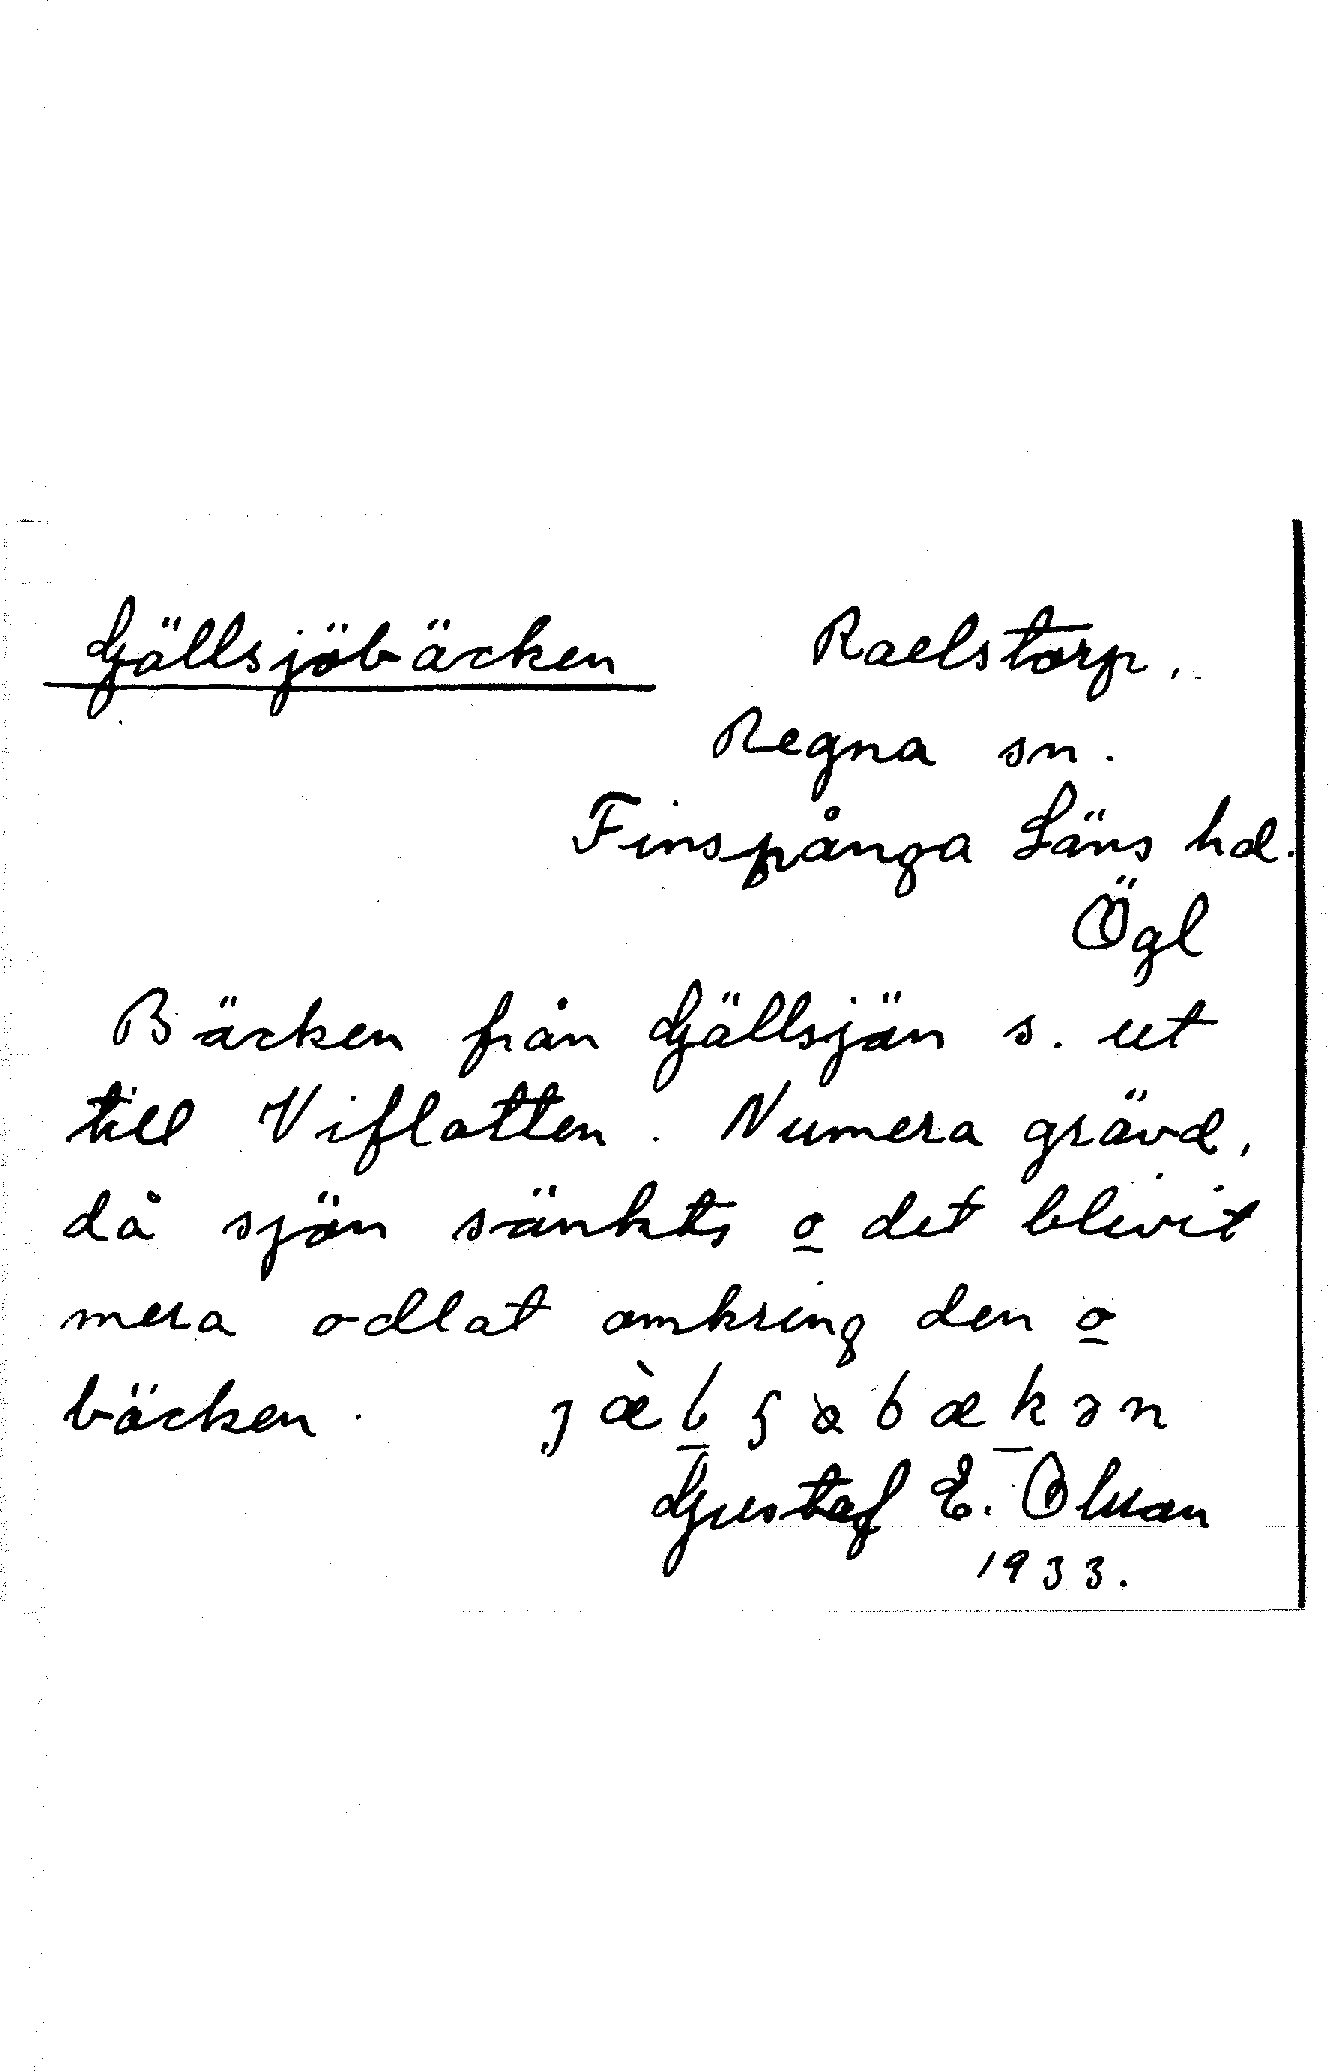 Gjällsjöbäcken Raelstorp.
Regna sn.
Finspånga Läns hd.
Ögl
Bäcken från Gjällsjön s. ut
till Viflotten. Numera grävd,
då sjön sänkts o det blivit
mera odlat omkring den o
bäcken.
Gustaf E. Olsson
1933.